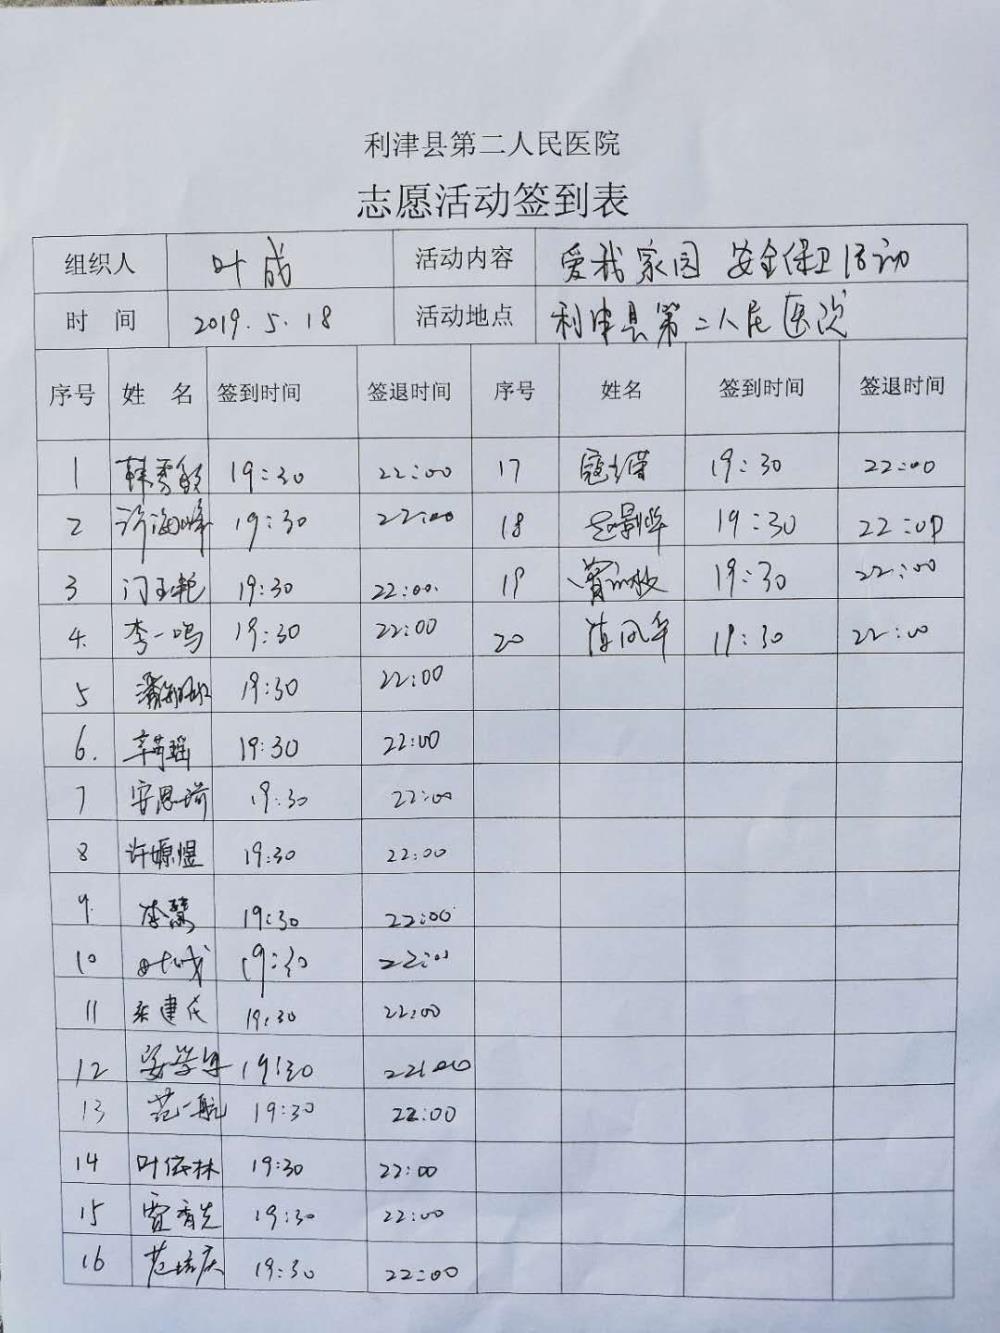 利津县第二人民医院
志愿活动签到表
组织人 叶成 活动内容 爱我家园 安全保卫活动
时 间 2019.5.18 活动地点 利津县第二人民医院
序号 姓 名 签到时间 签退时间 序号 姓名 签到时间 签退时间
1 19:30 22:00 17 19:30 22:00
2 许海峰 19:30 22:00 18 19:30 22:00
3 门玉艳 19:30 22:00. 19 19:30 22:00
4. 李一鸣 19:30 22:00 20 19:30 22:00
5 19:30 22:00
6. 19:30 22:00
7 安思琦 19:30 22:00
8 许嫄煜 19:30 22:00
9. 李慧 19:30 22:00
10 叶成 19:30 22:00
11 19:30 22:00
12 19:30 22:00
13 范一航 19:30 22:00
14 叶依林 19:30 22:00
15 19:30 22:00
16 19:30 22:00